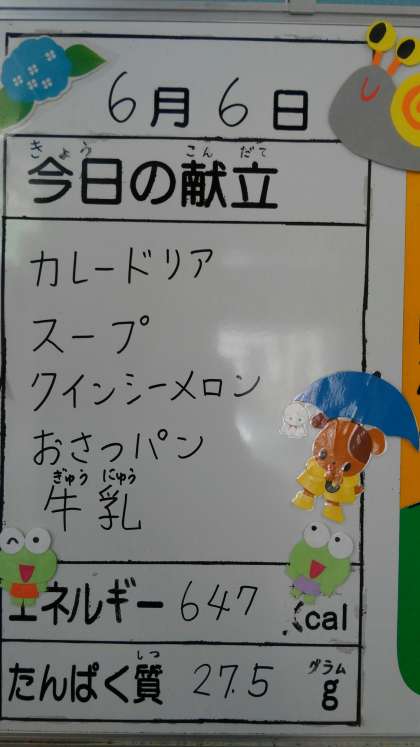 6月6日
きょう こんだて
今日の献立
カレードリア
スープ
クインシーメロン
おさつパン
ぎゅう にゅう
牛乳
エネルギー 647 kcal
しつ グラム
たんぱく質 27.5 g